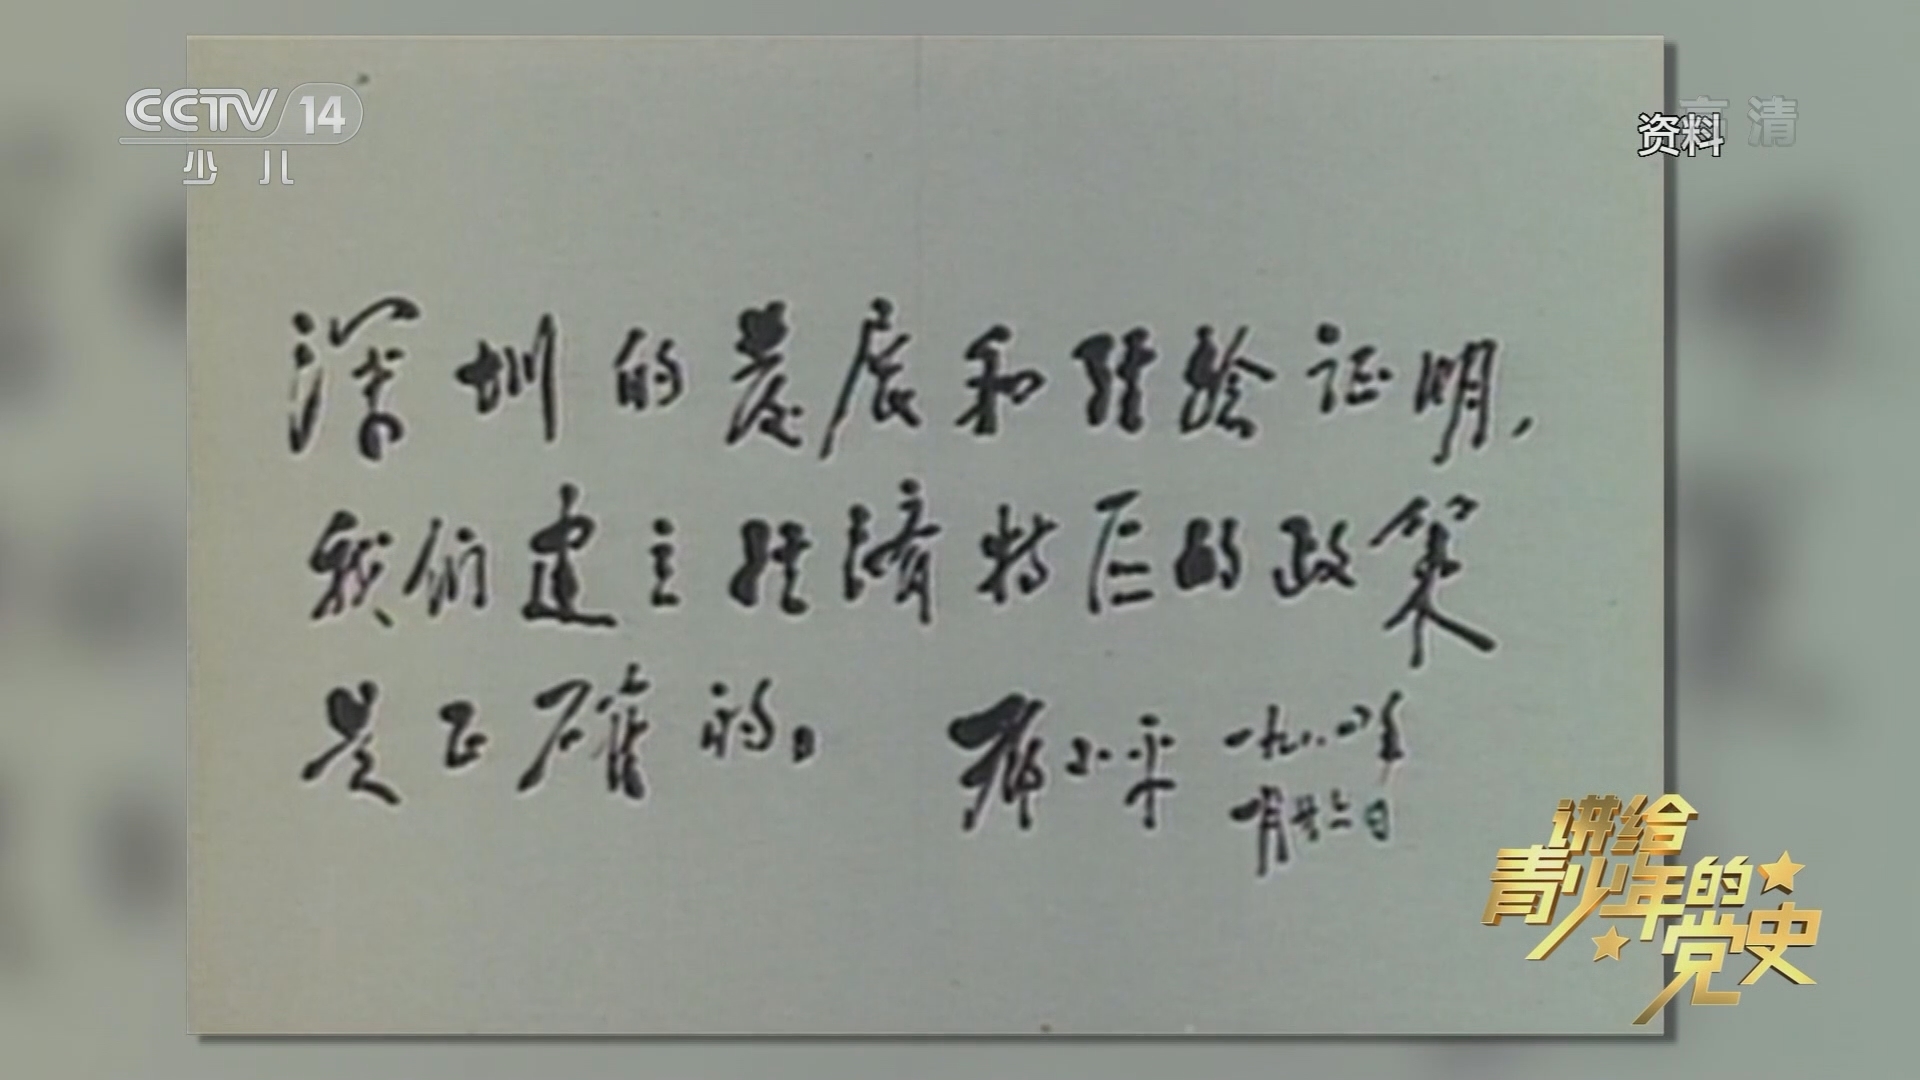 CCTV 14
少儿
高清
资料
深圳的发展和经验证明，
我们建立经济特区的政策
是正确的。
邓小平 一九八四年
一月廿六日
讲给
青少年的
党史